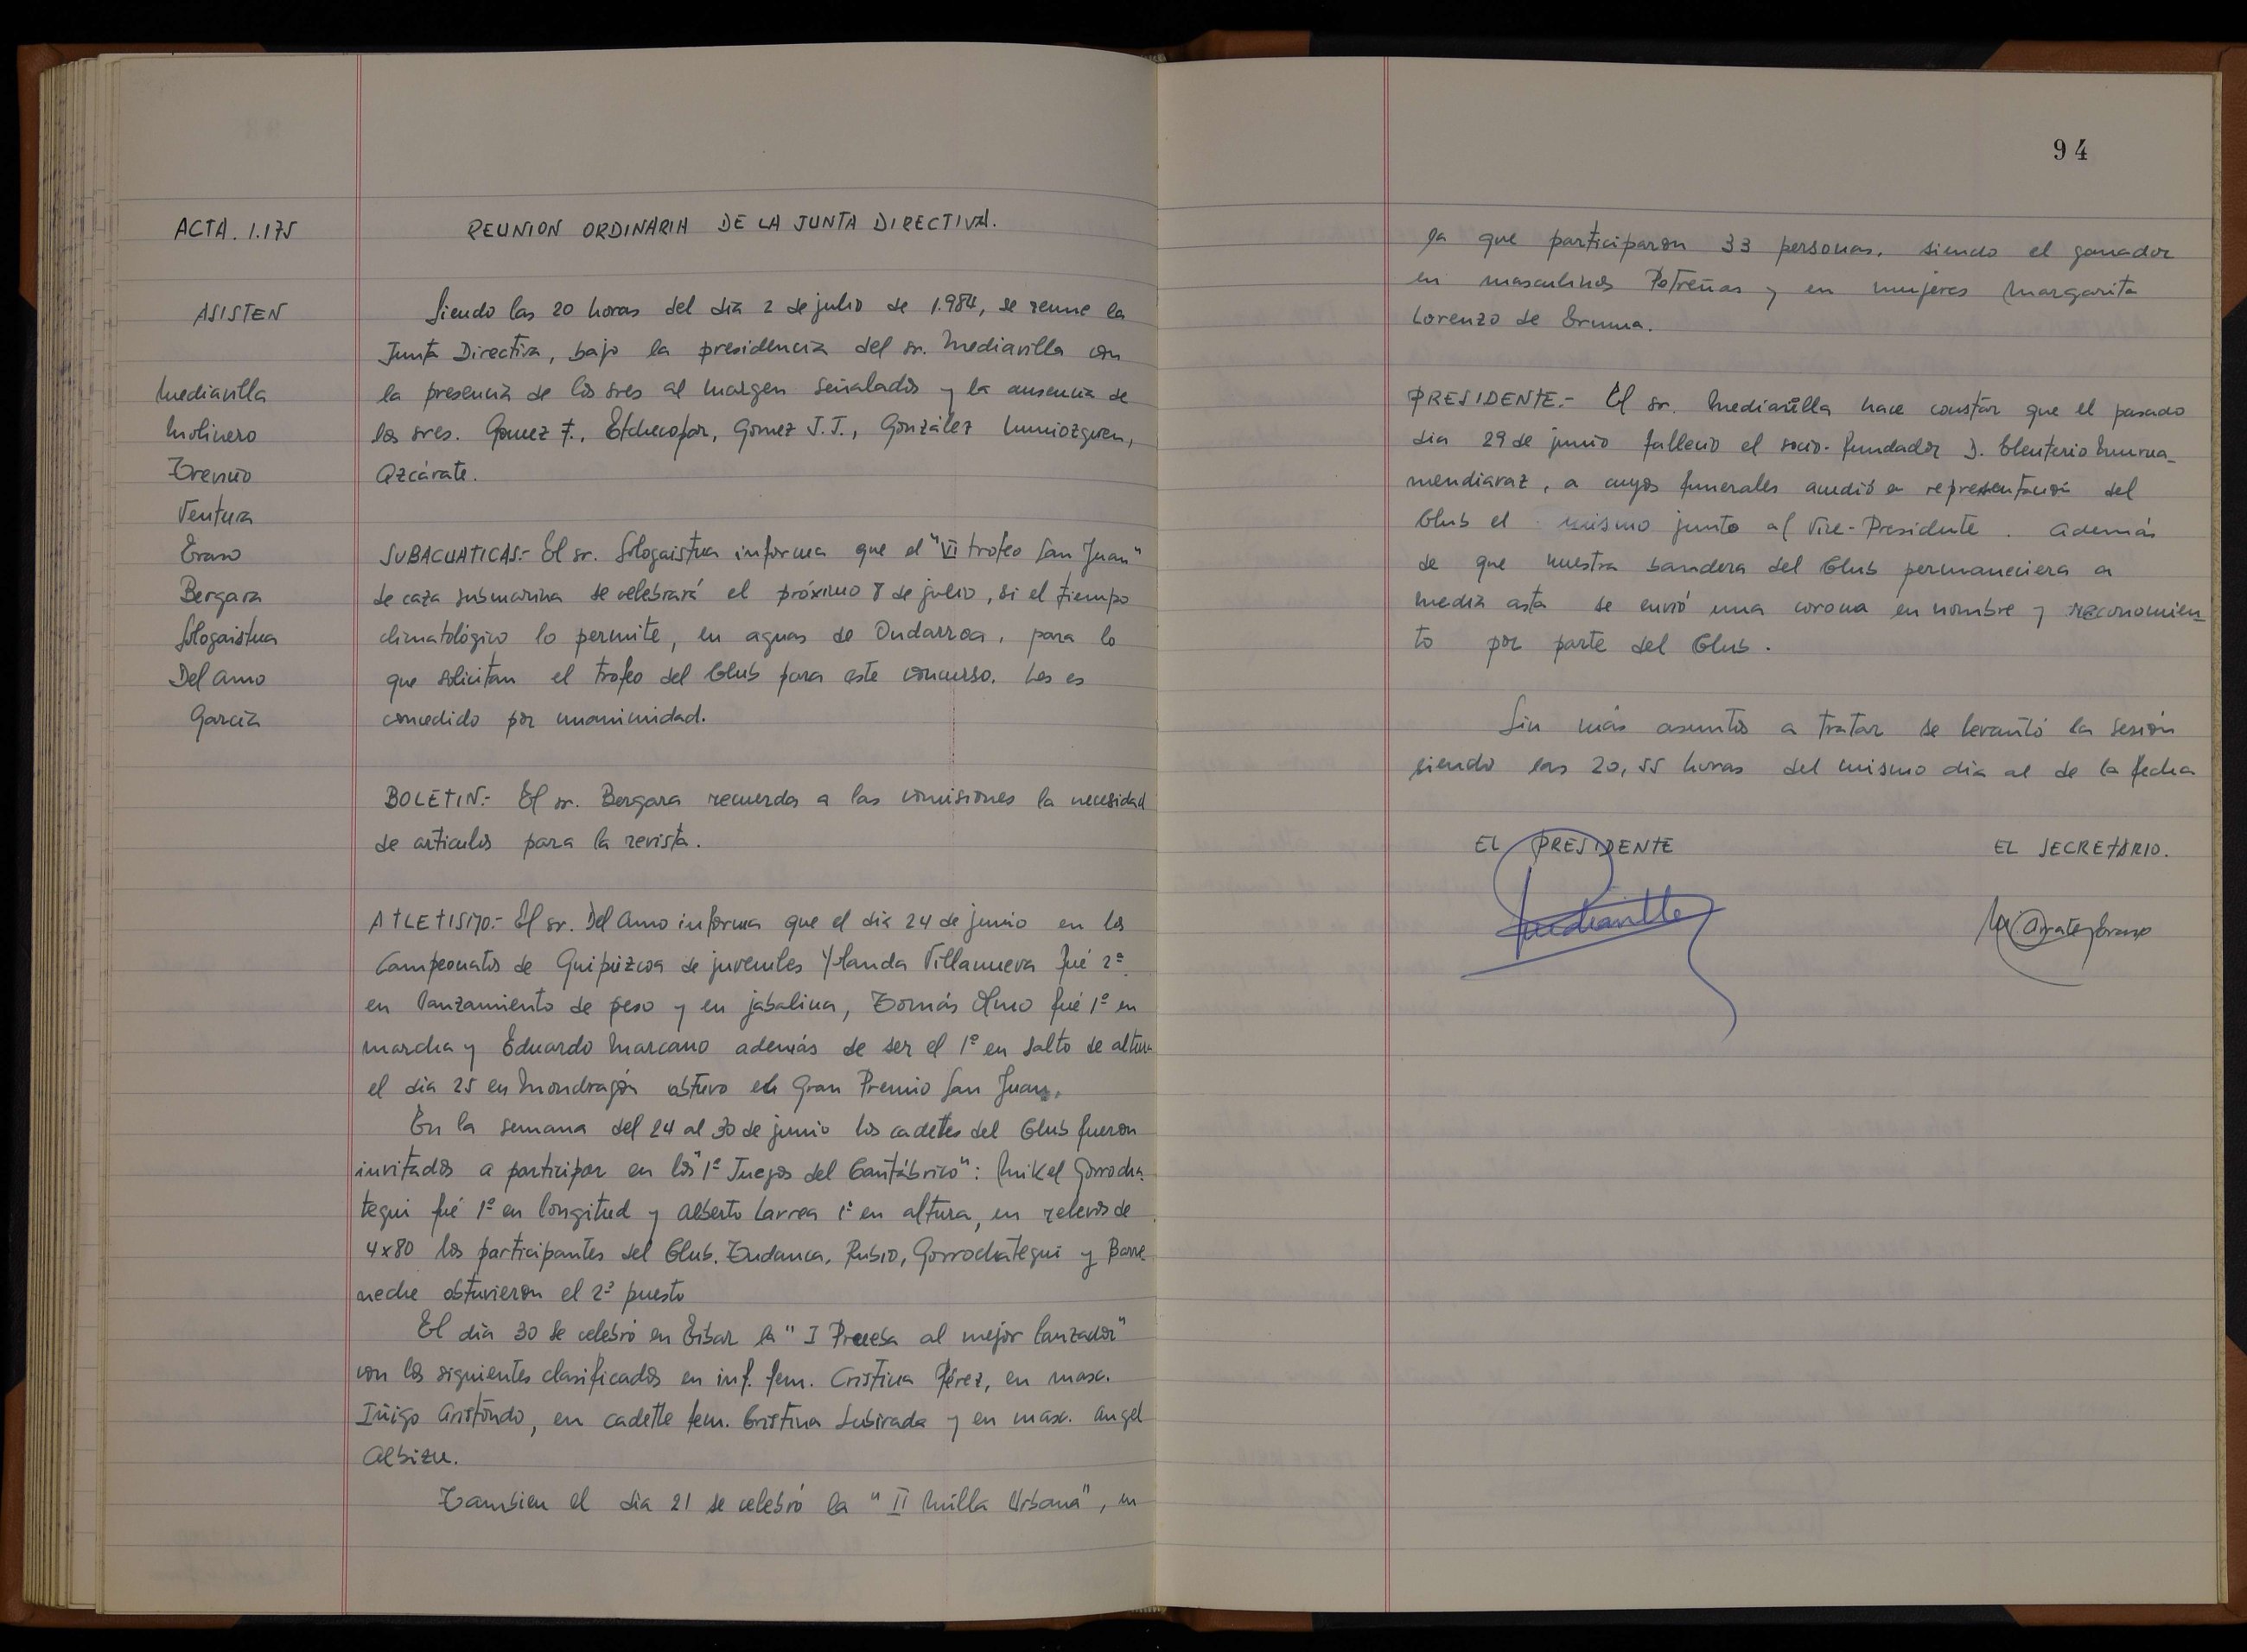 ACTA. 1.175
REUNION ORDINARIA DE LA JUNTA DIRECTIVA.
ASISTEN
Mediavilla
Molinero
Treviño
Ventura
Eraso
Bergara
Sologaistua
Del Amo
García
Siendo las 20 horas del dia 2 de julio de 1.984, se reune la
Junta Directiva, bajo la presidencia del sr. Mediavilla con
la presencia de los sres al margen señalados y la ausencia de
los sres. Gomez F., Etchecopar, Gomez J.J., González Muniozguren,
Azcárate.
SUBACUATICAS.- El sr. Sologaistua informa que el "VI trofeo San Juan"
de caza submarina se celebrará el próximo 8 de julio, si el tiempo
climatológico lo permite, en aguas de Ondarroa, para lo
que solicitan el trofeo del Club para este concurso. Les es
concedido por unanimidad.
BOLETIN.- El sr. Bergara recuerda a las comisiones la necesidad
de articulos para la revista.
ATLETISMO.- El sr. Del Amo informa que el dia 24 de junio en los
Campeonatos de Guipúzcoa de juveniles Yolanda Villanueva fué 2ª
en lanzamiento de peso y en jabalina, Tomás Olmo fué 1º en
marcha y Eduardo Marcano además de ser el 1º en salto de altura
el dia 25 en Mondragón obtuvo el Gran Premio San Juan.
En la semana del 24 al 30 de junio los cadetes del Club fueron
invitados a participar en los "1º Juegos del Cantábrico": Mikel Gorrocha
tegui fué 1º en longitud y Alberto Larrea 1º en altura, en relevos de
4x80 los participantes del Club. Tudanca, Rubio, Gorrochategui y Barre
neche obtuvieron el 2º puesto
El dia 30 se celebró en Eibar la "I Prueba al mejor lanzador"
con los siguientes clasificados en inf. fem. Cristina Pérez, en masc.
Iñigo Aristondo, en cadette fem. Cristina Subirada y en masc. Angel
Albizu.
Tambien el dia 21 se celebró la "II Milla Urbana", en
94
la que participaron 33 personas, siendo el ganador
en masculinos Potreñas y en mujeres Margarita
Lorenzo de Ermua.
PRESIDENTE.- El sr. Mediavilla hace constar que el pasado
dia 29 de junio fallecio el socio-fundador D. Eleuterio Murua-
mendiaraz, a cuyos funerales acudió en representación del
Club el mismo junto al Vice-Presidente. Además
de que nuestra bandera del Club permaneciera a
media asta se envió una corona en nombre y reconomien-
to por parte del Club.
Sin más asuntos a tratar se levantó la sesión
siendo las 20,55 horas del mismo dia al de la fecha
EL PRESIDENTE
EL SECRETARIO.
Mediavilla